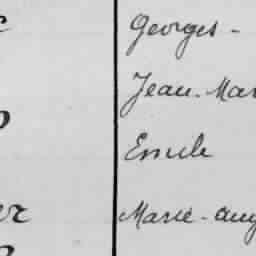 Georges -
Jean-Mar
Emile
er Marie-Aug